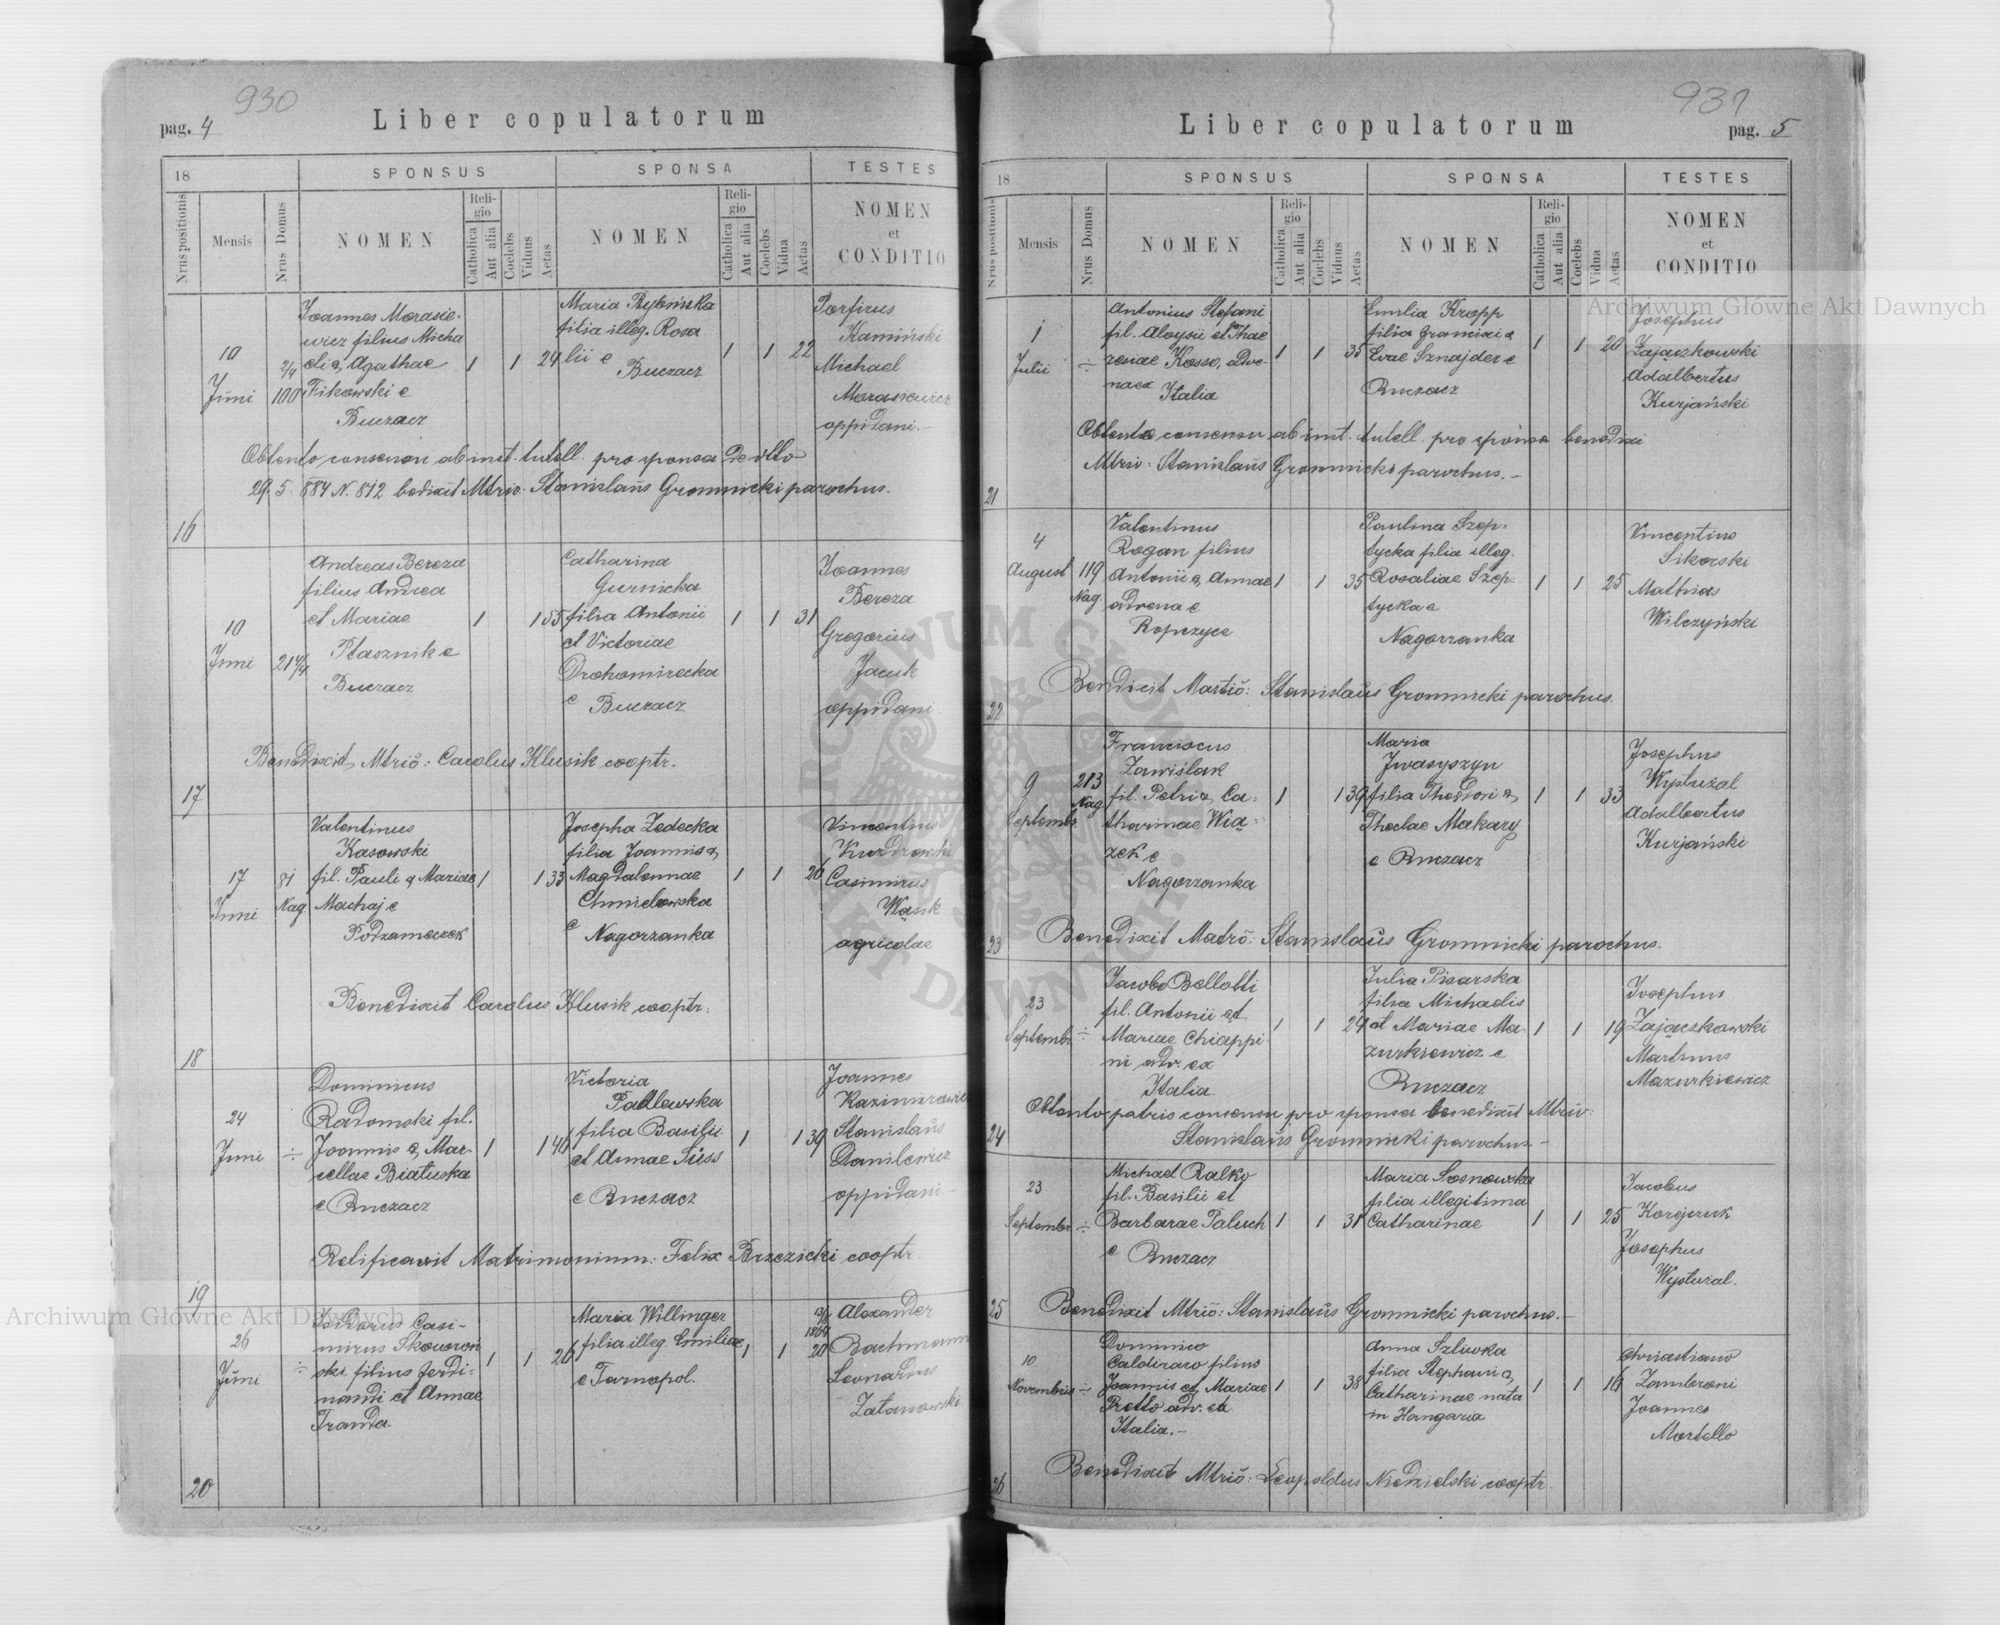 930
pag. 4
Liber copulatorum
18
SPONSUS
SPONSA
TESTES
Nrus positionis
Mensis
Nrus Domus
NOMEN
Religio
Catholica
Aut alia
Coelebs
Viduus
Aetas
NOMEN
Religio
Catholica
Aut alia
Coelebs
Vidua
Aetas
NOMEN
et
CONDITIO
10
Juni
100
Joannes Morasie-
wicz filius Micha
elis & Agathae
Fikowski e
Buczacz
1 1 24
Maria Rybińska
filia illeg. Rosa
lii e
Buczacz
1 1 22
Porfirus
Kamiński
Michael
Morasiewicz
oppidani.-
Obtento consensu ab inst. tutell. pro sponsa de dtto
29. 5. 884 N. 812 bedixit Mtrio. Stanislaus Gromnicki parochus.
16
10
Juni
Andreas Bereza
filius Andrea
et Mariae
Ptasznik e
Buczacz
1 1 55
Catharina
Gurnicka
filia Antonii
et Victoriae
Drohomirecka
e Buczacz
1 1 31
Joannes
Bereza
Gregorius
Jacuk
oppidani
Benedixit Mtriō: Carolus Klusik cooptr.
17
17
Juni
81
Nag
Valentinus
Kasowski
fil. Pauli & Mariae
Machaj e
Podzameczek
1 1 33
Josepha Zedecka
filia Joannis &
Magdalennae
Chmielowska
e Nagorzanka
1 1 26
Vincentius
Kuzdrowski
Casimirus
Wąsik
agricolae
Benedixit Carolus Klusik cooptr.
18
24
Juni
÷
Dominicus
Radomski fil.
Joannis & Mar-
cellae Białuska
e Buczacz
1 1 40
Victoria
Padlewska
filia Basilii
et Annae Süss
e Buczacz
1 1 39
Joannes
Kazimirowicz
Stanislaus
Danilewicz
oppidani.-
Retificavit Matrimonium: Felix Brzezicki cooptr.
19
26
Juni
÷
Isidorus Casi-
mirus Skowroń
ski filius Ferdi-
nandi et Annae
Franda.
1 1 26
Maria Willinger
filia illeg. Emiliae
e Tarnopol.
1 1 20
1864
Alexander
Bachmann
Leonardus
Zatanowski
20
931
Liber copulatorum
pag. 5
18
SPONSUS
SPONSA
TESTES
Nrus positionis
Mensis
Nrus Domus
NOMEN
Religio
Catholica
Aut alia
Coelebs
Viduus
Aetas
NOMEN
Religio
Catholica
Aut alia
Coelebs
Vidua
Aetas
NOMEN
et
CONDITIO
1
Julii
÷
Antonius Stefani
fil. Aloysii et Thae
resiae Kosso, adve-
nae ex
Italia
1 1 35
Emilia Kropp
filia Francisci &
Evae Sznajder e
Buczacz
1 1 20
Josephus
Zajączkowski
Adalbertus
Kurjański
Obtento consensu ab inst. tutell. pro sponsa benedixi
Mtrio: Stanislaus Gromnicki parochus.-
21
4
August
119
Nag
Valentinus
Rogan filius
Antonii & Annae
advena e
Ropczyce
1 1 35
Paulina Szep-
tycka filia illeg.
Rosaliae Szep-
tycka e
Nagorzanka
1 1 25
Vincentius
Sikorski
Mathias
Wilczyński
Benedixit Mastiō: Stanislaus Gromnicki parochus.
22
9
Septembr.
213
Nag
Franciscus
Zawiślak
fil. Petri & Ca-
tharinae Wią-
zek e
Nagorzanka
1 1 39
Maria
Iwasyszyn
filia Theodori &
Theclae Makary
e Buczacz
1 1 33
Josephus
Wystuzal
Adalbertus
Kurjański
Benedixit Matrō: Stanislaus Gromnicki parochus.
23
23
Septembr
÷
Jacobo Bellotti
fil. Antonii et
Mariae Chiappi-
ni adv. ex
Italia
1 1 24
Julia Pisarska
filia Michaelis
et Mariae Ma-
zurkiewicz e
Buczacz
1 1 19
Josephus
Zajączkowski
Martinus
Mazurkiewicz
Obtento patris consensu pro sponsa benedixit Mtrio:
Stanislaus Gromnicki parochus.-
24
23
Septembr
÷
Michael Ralko
fil. Basilii et
Barbarae Paluch
e Buczacz
1 1 31
Maria Sosnowska
filia illegitima
Catharinae
1 1 25
Jacobus
Korejczuk
Josephus
Wystuzal.
Benedixit Mtriō: Stanislaus Gromnicki parochus.-
25
10
Novembris
÷
Dominico
Caldiraro filius
Joannis et Mariae
Pretto adv. ex
Italia.-
1 1 38
Anna Szliwka
filia Stephani &
Catharinae nata
in Hangaria
1 1 16
Christiano
Zamberoni
Joannes
Martello
Benedixit Mtriō: Leopoldus Niedzielski cooptr.
26
Archiwum Główne Akt Dawnych
Archiwum Główne Akt Dawnych
ARCHIWUM GŁÓWNE AKT DAWNYCH